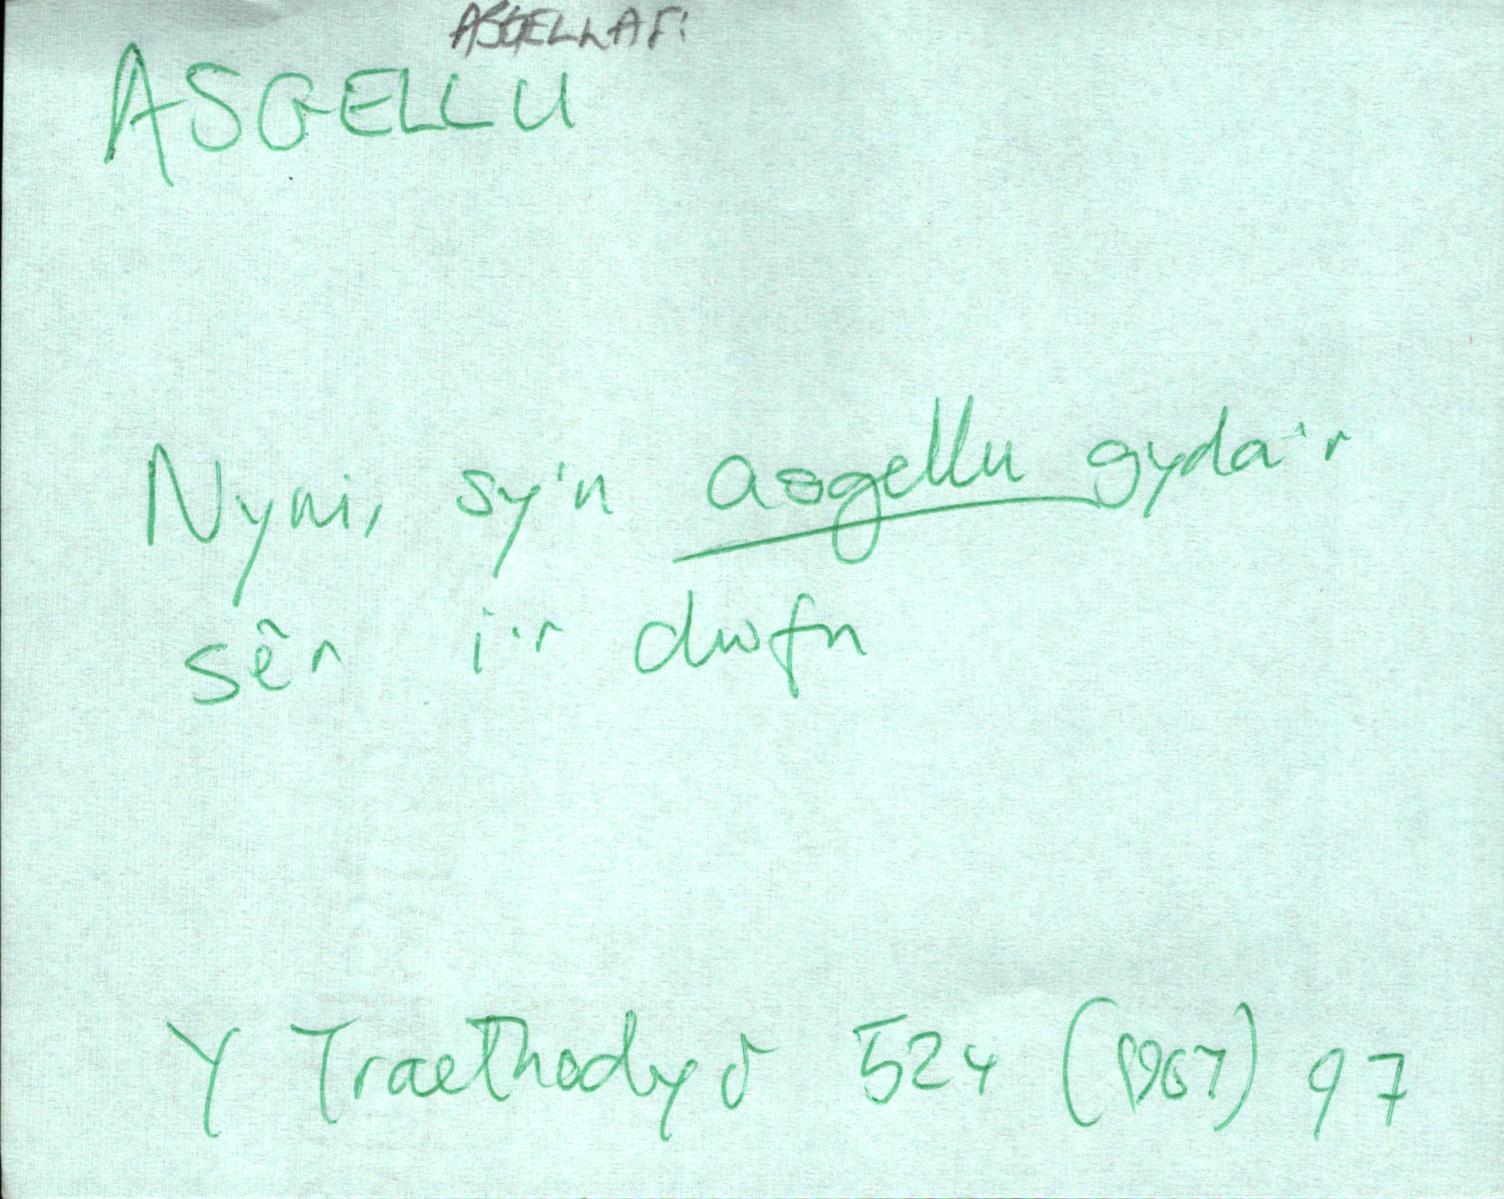 ASGELLAF:
ASGELLU
Nyni, sy'n asgellu gyda'r
sêr i'r dwfn
Y Traethodydd 524 (1967) 97